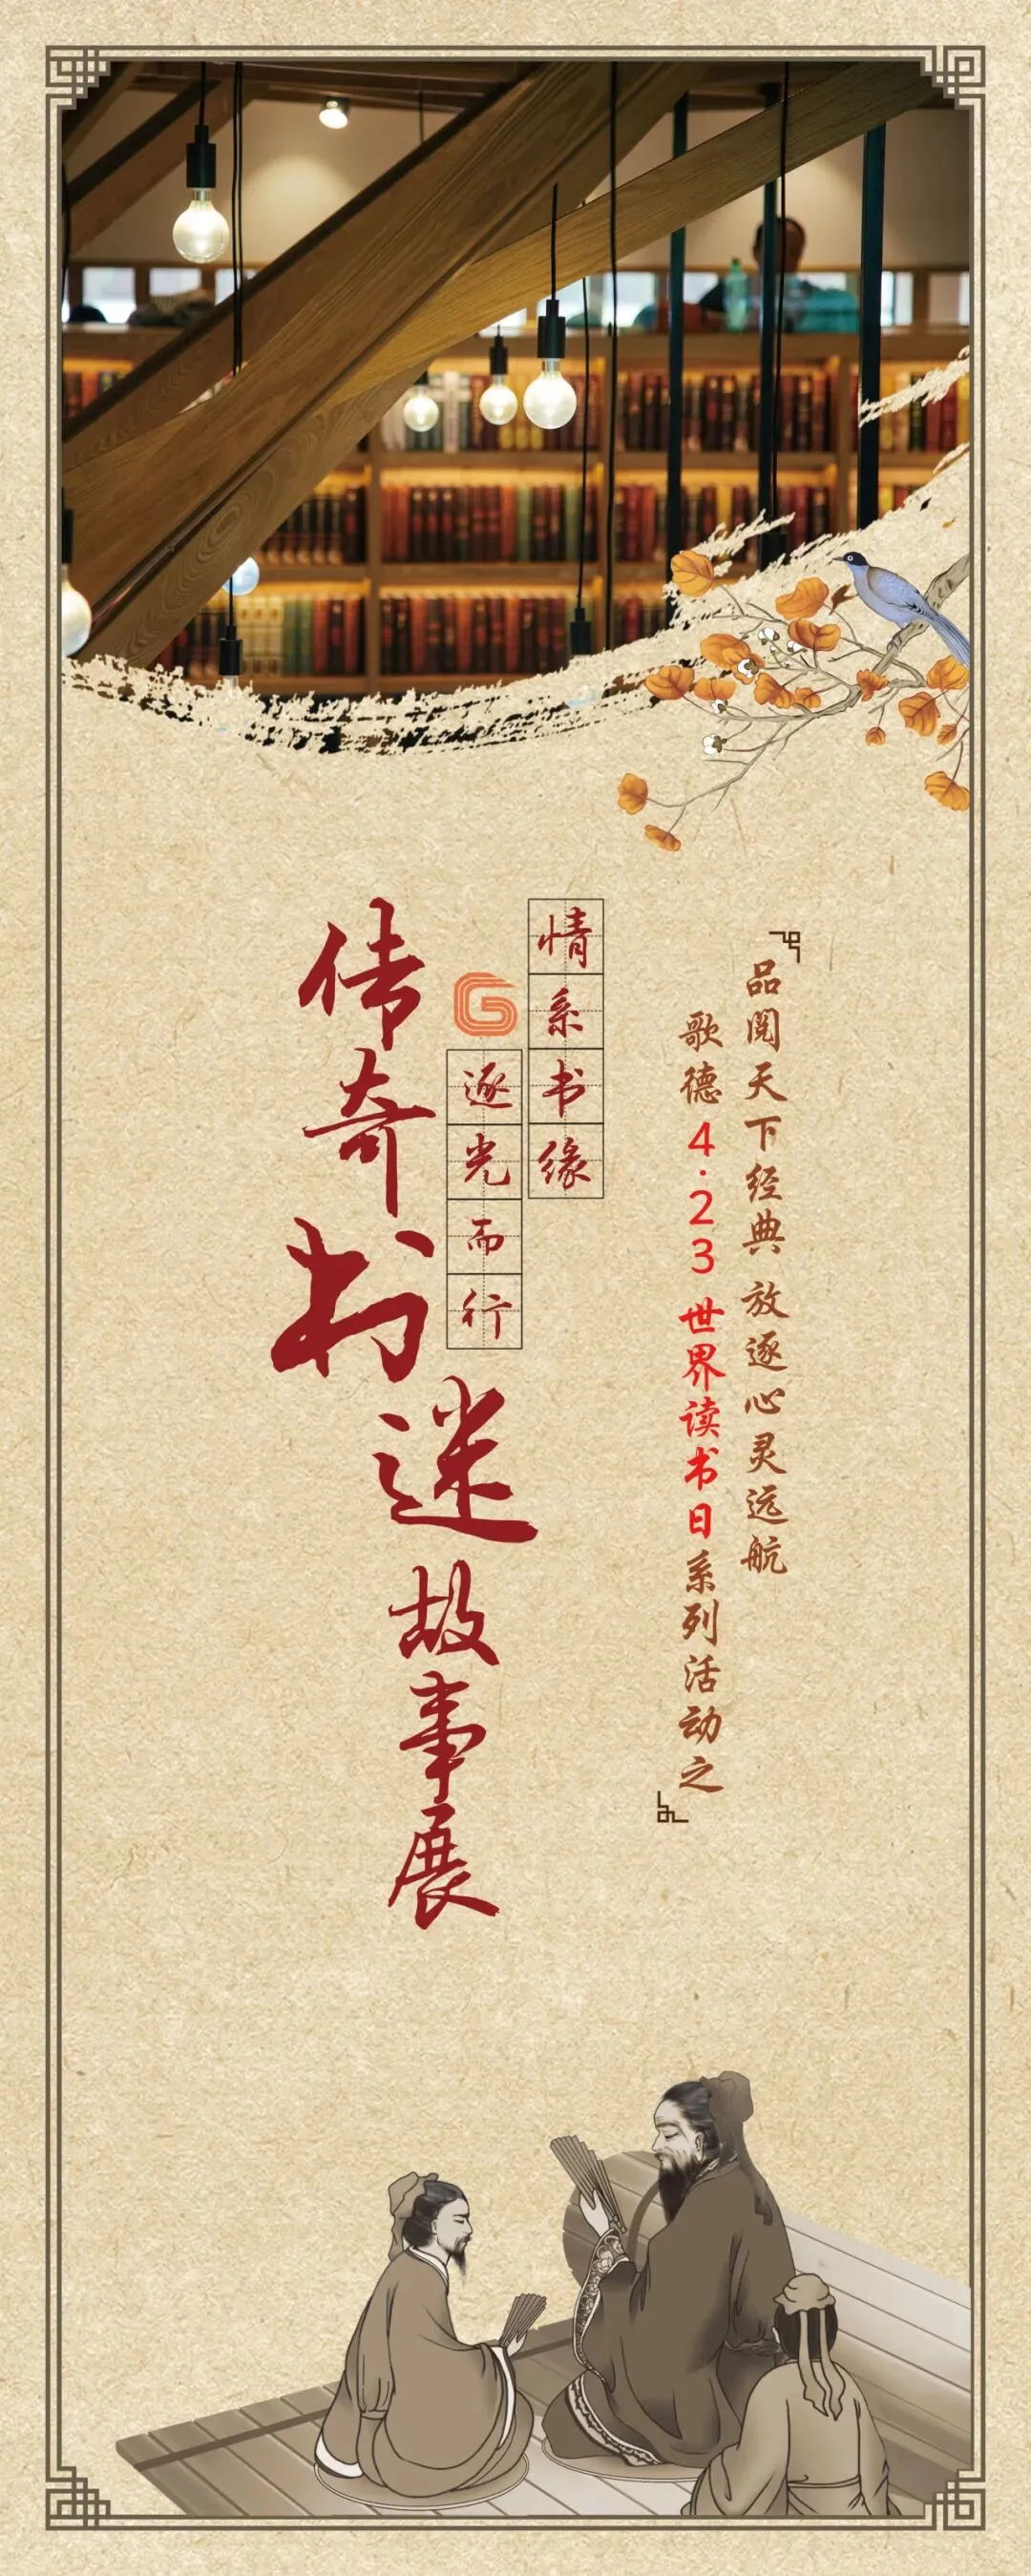 品阅天下经典 放逐心灵远航
歌德 4·23 世界读书日系列活动之
情系书缘
逐光而行
传奇书迷故事展